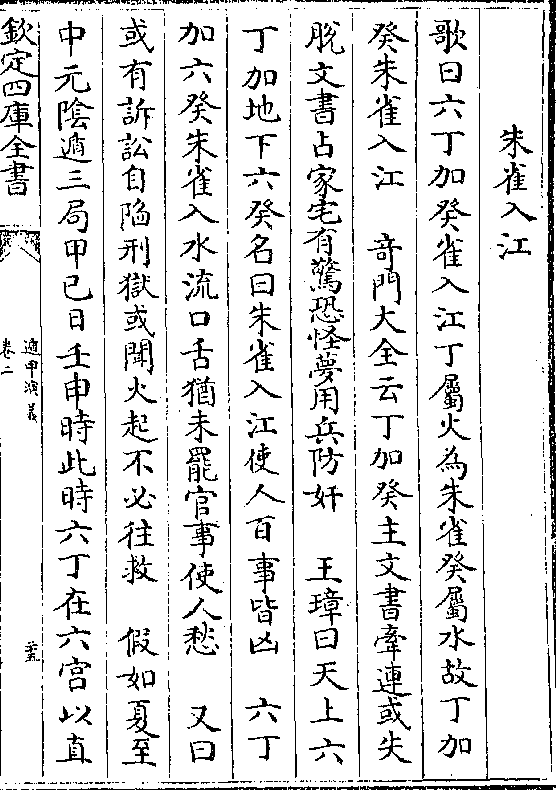 朱雀入江
歌曰六丁加癸雀入江丁屬火為朱雀癸屬水故丁加
癸朱雀入江　奇門大全云丁加癸主文書牽連或失
脫文書占家宅有驚恐怪夢用兵防奸　王璋曰天上六
丁加地下六癸名曰朱雀入江使人百事皆凶　六丁
加六癸朱雀入水流口舌猶未罷官事使人愁　又曰
或有訴訟自陷刑獄或聞火起不必往救　假如夏至
中元陰遁三局甲己日壬申時此時六丁在六宫以直
欽定四庫全書
遁甲演義
卷二